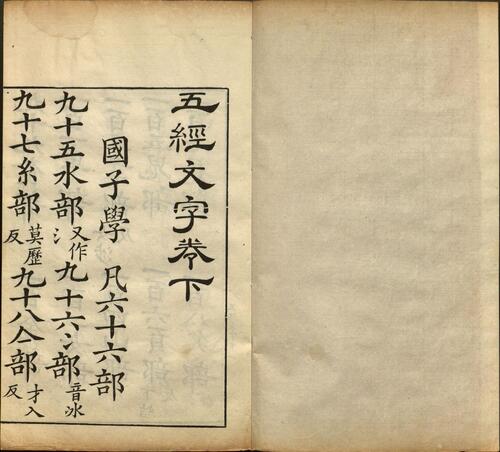 五經文字卷下
國子學 凡六十六部
九十五水部又作氵九十六冫部音冰
九十七糸部莫歷反九十八亼部才入反